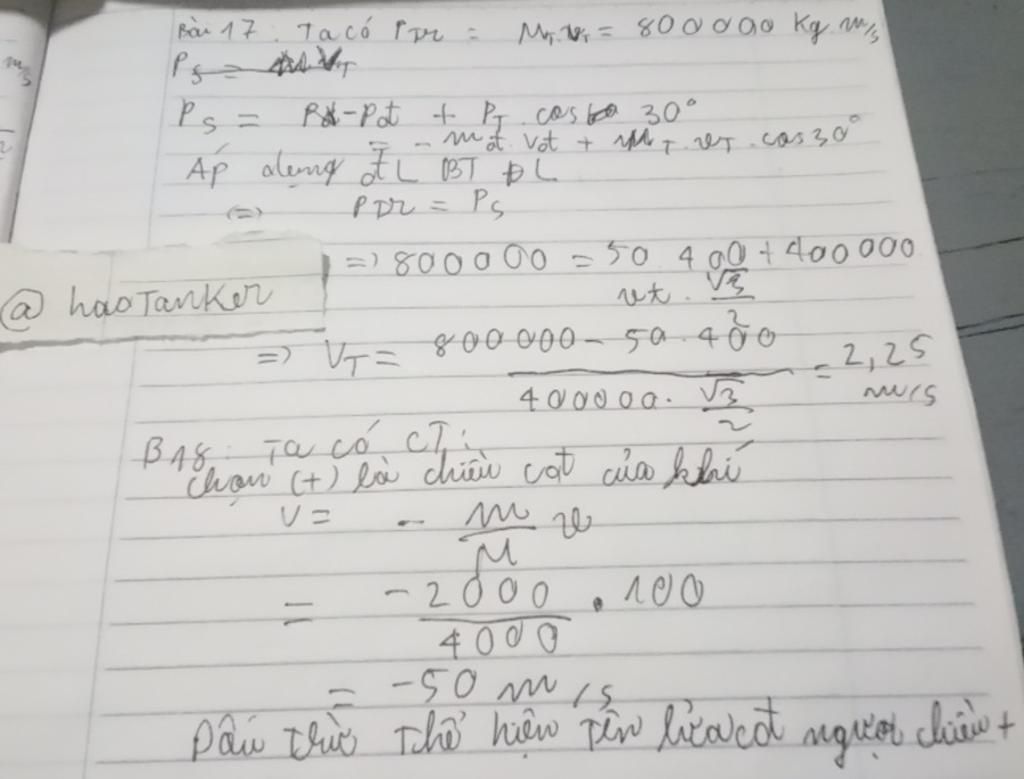 Bài 17: Ta có P_Tr = M_T.v_T = 800000 Kg m/s
P_S = V_T
P_S = -P_đ + P_T cos 30°
= -m_đ.v_đ + m_T.v_T.cos30°
Áp dụng ĐL BT ĐL
(=) P_Tr = P_S
=> 800000 = 50 400 + 400000
v_T . √3/2
@ haoTanker
=> V_T = 800000 - 50.400 / 400000.√3/2 = 2,25 m/s
B18: Ta có CT:
chọn (+) là chiều cđ của khí
V = - m/M v
= -2000/4000 . 100
= -50 m/s
Dấu trừ thể hiện tên lửa cđ ngược chiều +